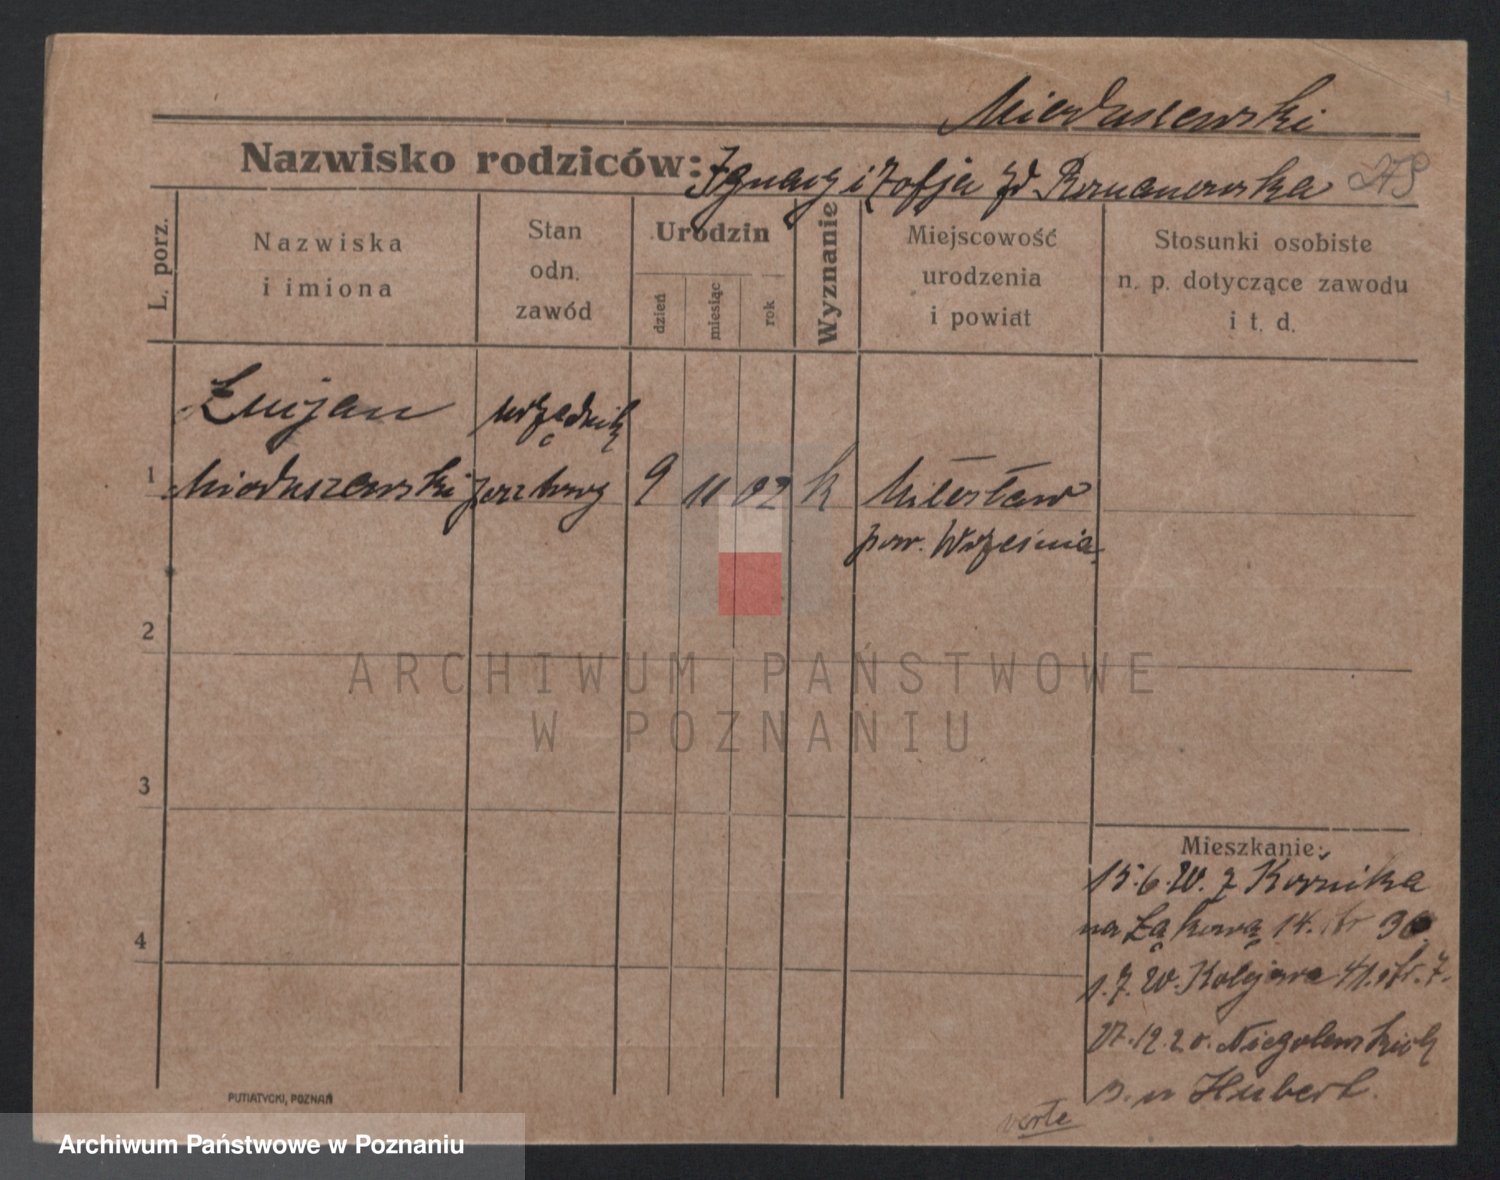 Mioduszewski
Nazwisko rodziców: Ignacy i Zofja zd Romanowska
L. porz.
Nazwiska
i imiona
Stan
odn.
zawód
Urodzin
dzień
miesiąc
rok
Wyznanie
Miejscowość
urodzenia
i powiat
Stosunki osobiste
n. p. dotyczące zawodu
i t. d.
Łucjan urzędnik
1 Mioduszewski pocztowy 9 11 02 k Miłosław
pow. Września
2
ARCHIWUM PAŃSTWOWE
W POZNANIU
3
Mieszkanie:
15.6.20. z Kórnika
na Łąkową 14.
4
1.7.20. Kolejowa 41. str. 7.
27.12.20. Niegolewskich
3. u Hubert.
verte
PUTIATYCKI, POZNAŃ
Archiwum Państwowe w Poznaniu